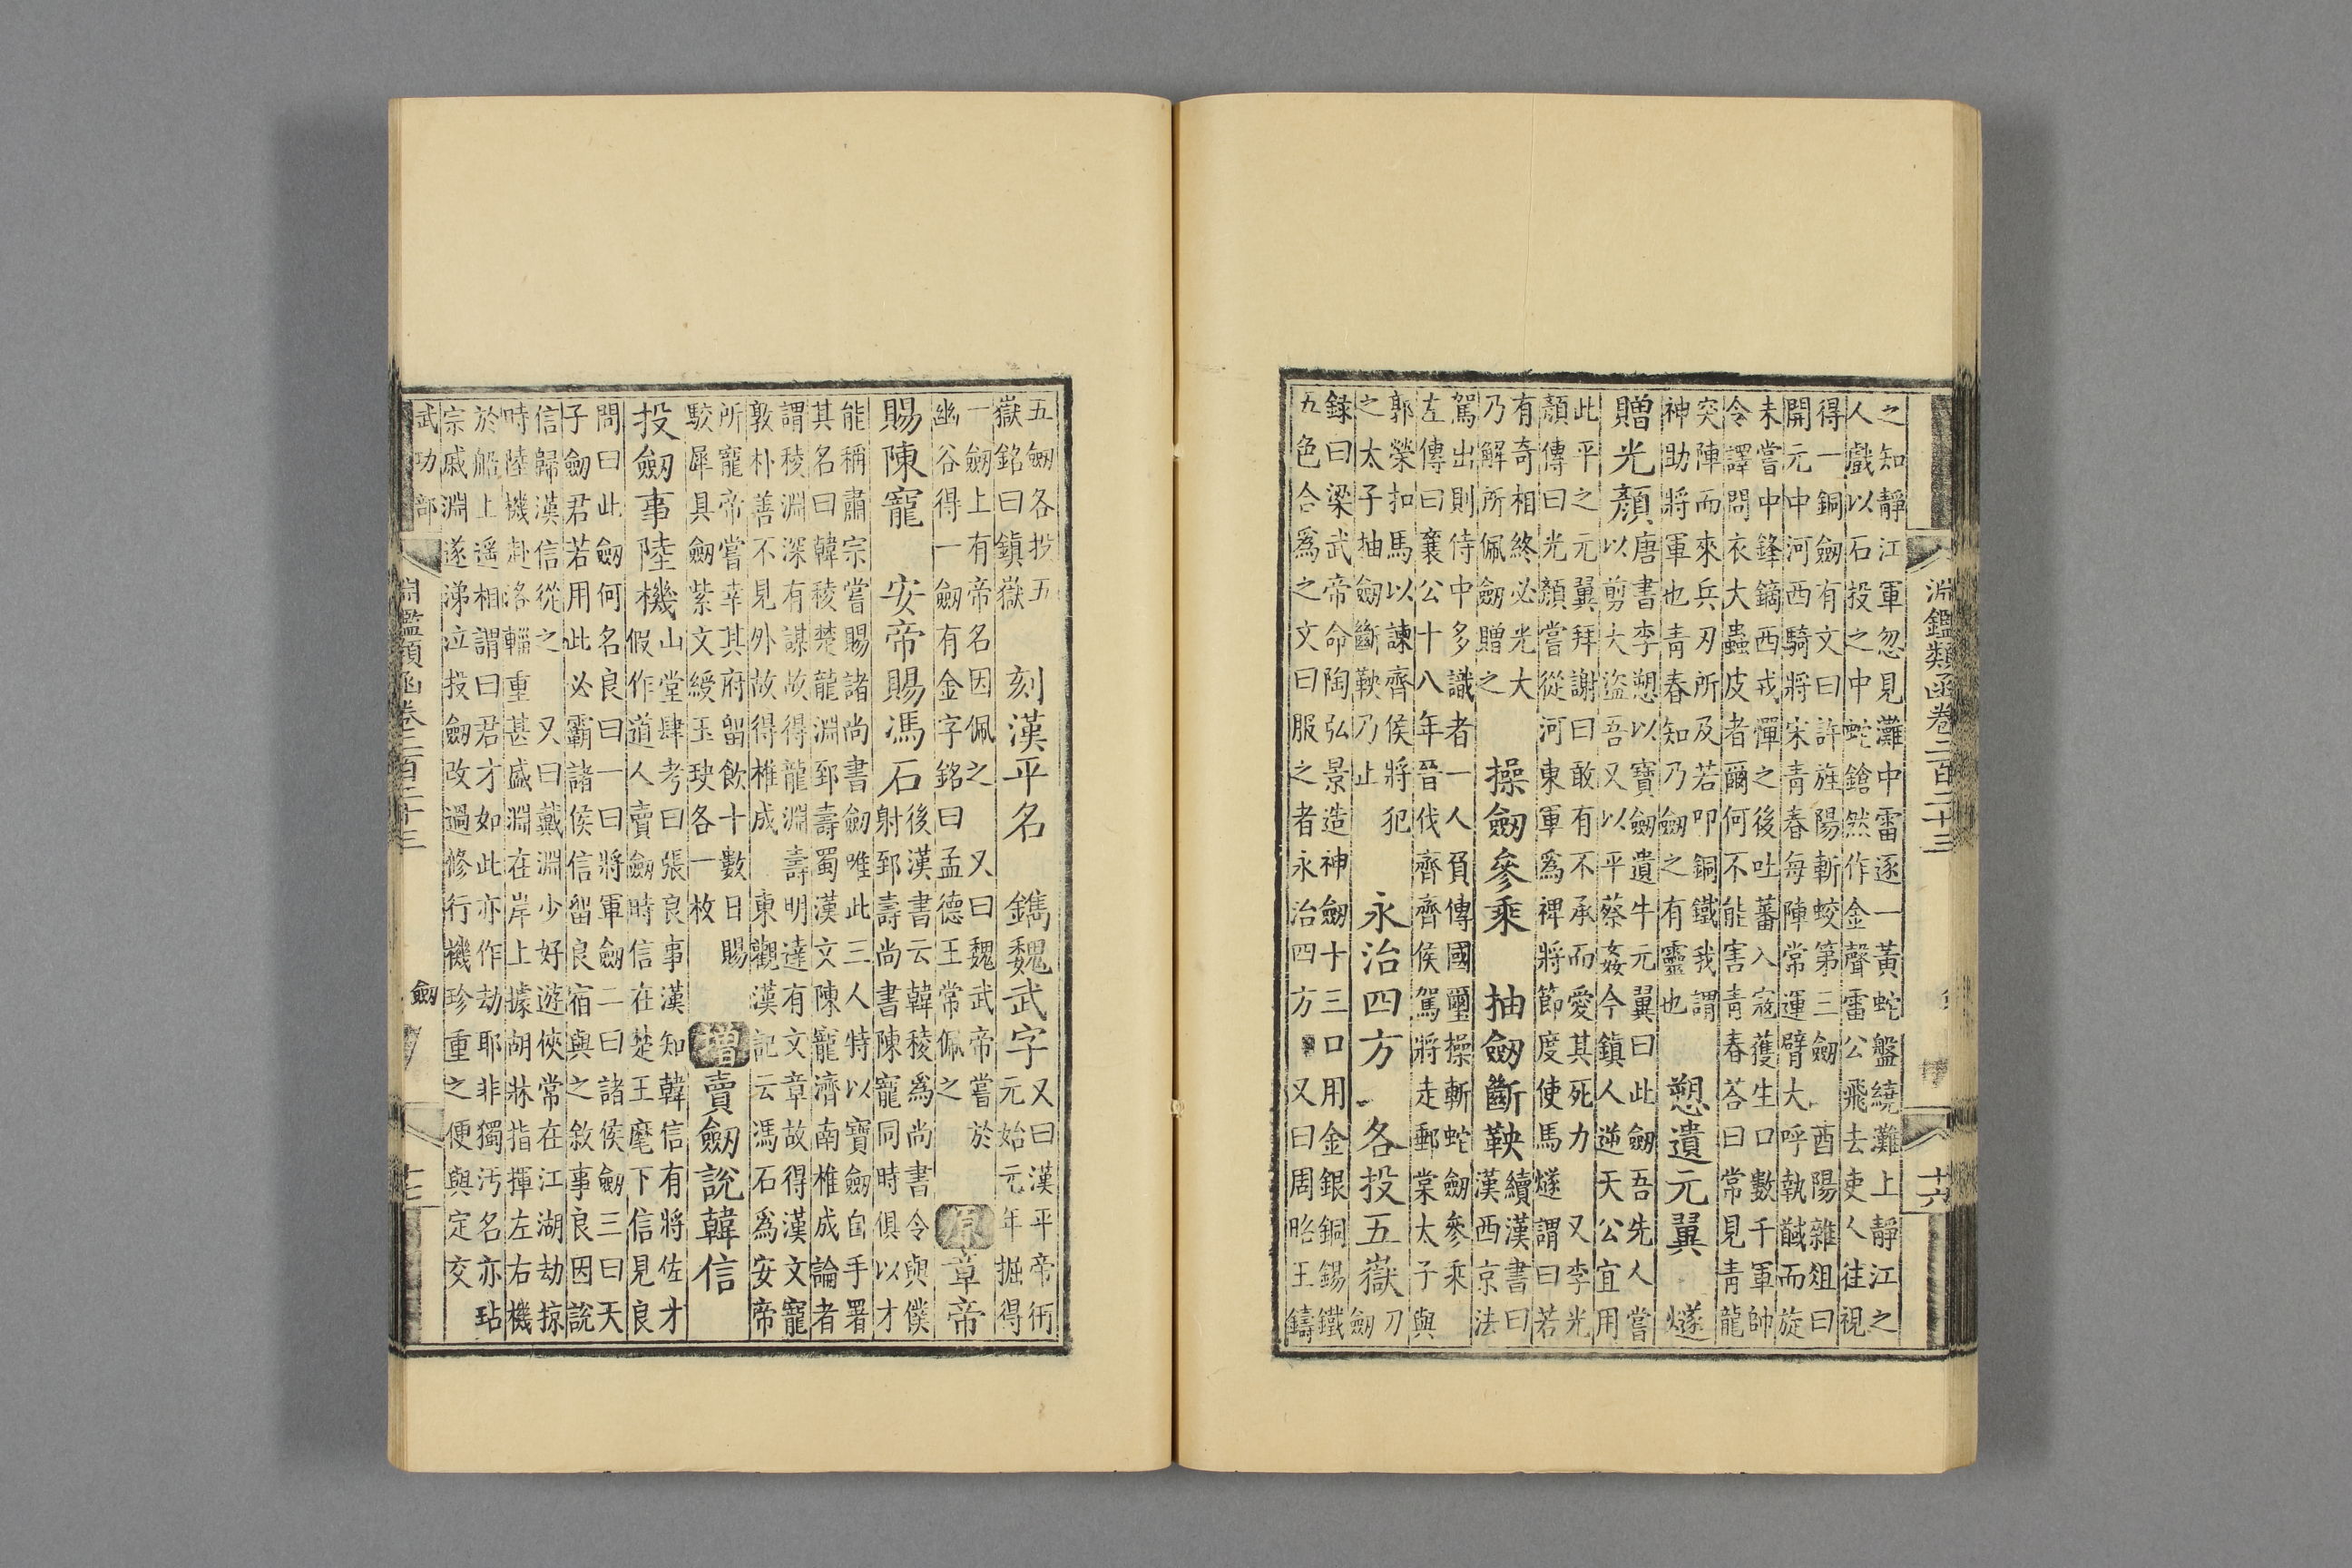 淵鑑類函卷二百二十三
十六
之知靜江軍忽見灘中雷逐一黃蛇盤繞灘上靜江之
人戲以石投之中蛇鎗然作金聲雷公飛去吏人往視
得一銅劔有文曰許旌陽斬蛟第三劔 酉陽雜俎曰
開元中河西騎將宋青春每陣常運臂大呼執馘而旋
未嘗中鋒鏑西戎憚之後吐蕃入寇獲生口數千軍帥
令譯問衣大蟲皮者爾何不能害青春荅曰常見青龍
突陣而來兵刃所及若叩銅鐵我謂
神助將軍也青春知乃劔之有靈也
愬遺元翼 燧
贈光顏
唐書李愬以寶劔遺牛元翼曰此劔吾先人嘗
以剪大盜吾又以平蔡姦今鎮人逆天公宜用
此平之元翼拜謝曰敢有不承而愛其死力 又李光
顏傳曰光顏嘗從河東軍爲裨將節度使馬燧謂曰若
有奇相終必光大
乃解所佩劔贈之
操劔參乘 抽劔斷鞅
續漢書曰
漢西京法
駕出則侍中多識者一人負傳國璽操斬蛇劔參乘
左傳曰襄公十八年晉伐齊齊侯駕將走郵棠太子與
郭榮扣馬以諫齊侯將犯
之太子抽劔斷鞅乃止
永治四方 各投五嶽
刀
劔
錄曰梁武帝命陶弘景造神劔十三口用金銀銅錫鐵
五色合爲之文曰服之者永治四方 又曰周昭王鑄
五劔各投五
嶽銘曰鎮嶽
刻漢平名 鐫魏武字
又曰漢平帝衎
元始元年掘得
一劔上有帝名因佩之 又曰魏武帝嘗於
幽谷得一劔有金字銘曰孟德王常佩之
原 章帝
賜陳寵 安帝賜馮石
後漢書云韓稜爲尚書令與僕
射郅壽尚書陳寵同時俱以才
能稱肅宗嘗賜諸尚書劔唯此三人特以寶劔自手署
其名曰韓稜楚龍淵郅壽蜀漢文陳寵濟南椎成論者
謂稜淵深有謀故得龍淵 壽明達有文章故得漢文寵
敦朴善不見外故得椎成 東觀漢記云馮石爲安帝
所寵帝嘗幸其府留飲十數日賜
駮犀具劔紫文綬玉玦各一枚
增 賣劔說韓信
投劔事陸機
山堂肆考曰張良事漢知韓信有將佐才
假作道人賣劔時信在楚王麾下信見良
問曰此劔何名良曰一曰將軍劔二曰諸侯劔三曰天
子劔君若用此必霸諸侯信留良宿與之敘事良因說
信歸漢信從之 又曰戴淵少好遊俠常在江湖劫掠
時陸機赴洛輜重甚盛淵在岸上據胡牀指揮左右機
於船上遙相謂曰君才如此亦作劫耶非獨汚名亦玷
宗戚淵遂涕泣投劔改過修行機珍重之便與定交
武功部
淵鑑類函卷二百二十三
劔
十七